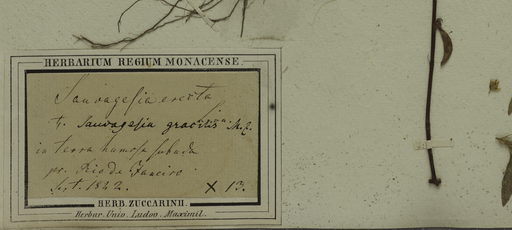 HERBARIUM REGIUM MONACENSE.
Sauvagesia erecta
Sauvagesia gracilis
in terra humosa subuda
pr. Rio de Janeiro
Sept. 1842. X 13.
HERB. ZUCCARINII.
Herbar. Univ. Ludov. Maximil.